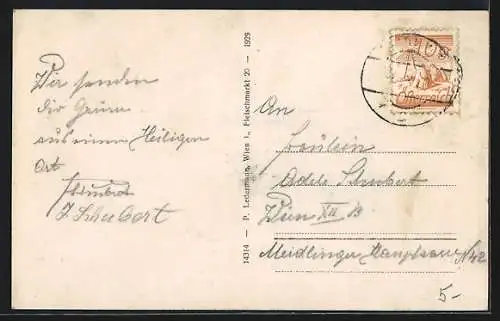 Wir senden
die Grüße
aus einem Heiligen
Ort
J. Schubert
14314 — P. Ledermann, Wien I., Fleischmarkt 20 — 1929
An
Fräulein
Adele Schubert
Wien XII
Meidlinger Hauptstrasse N42
Österreich
5-